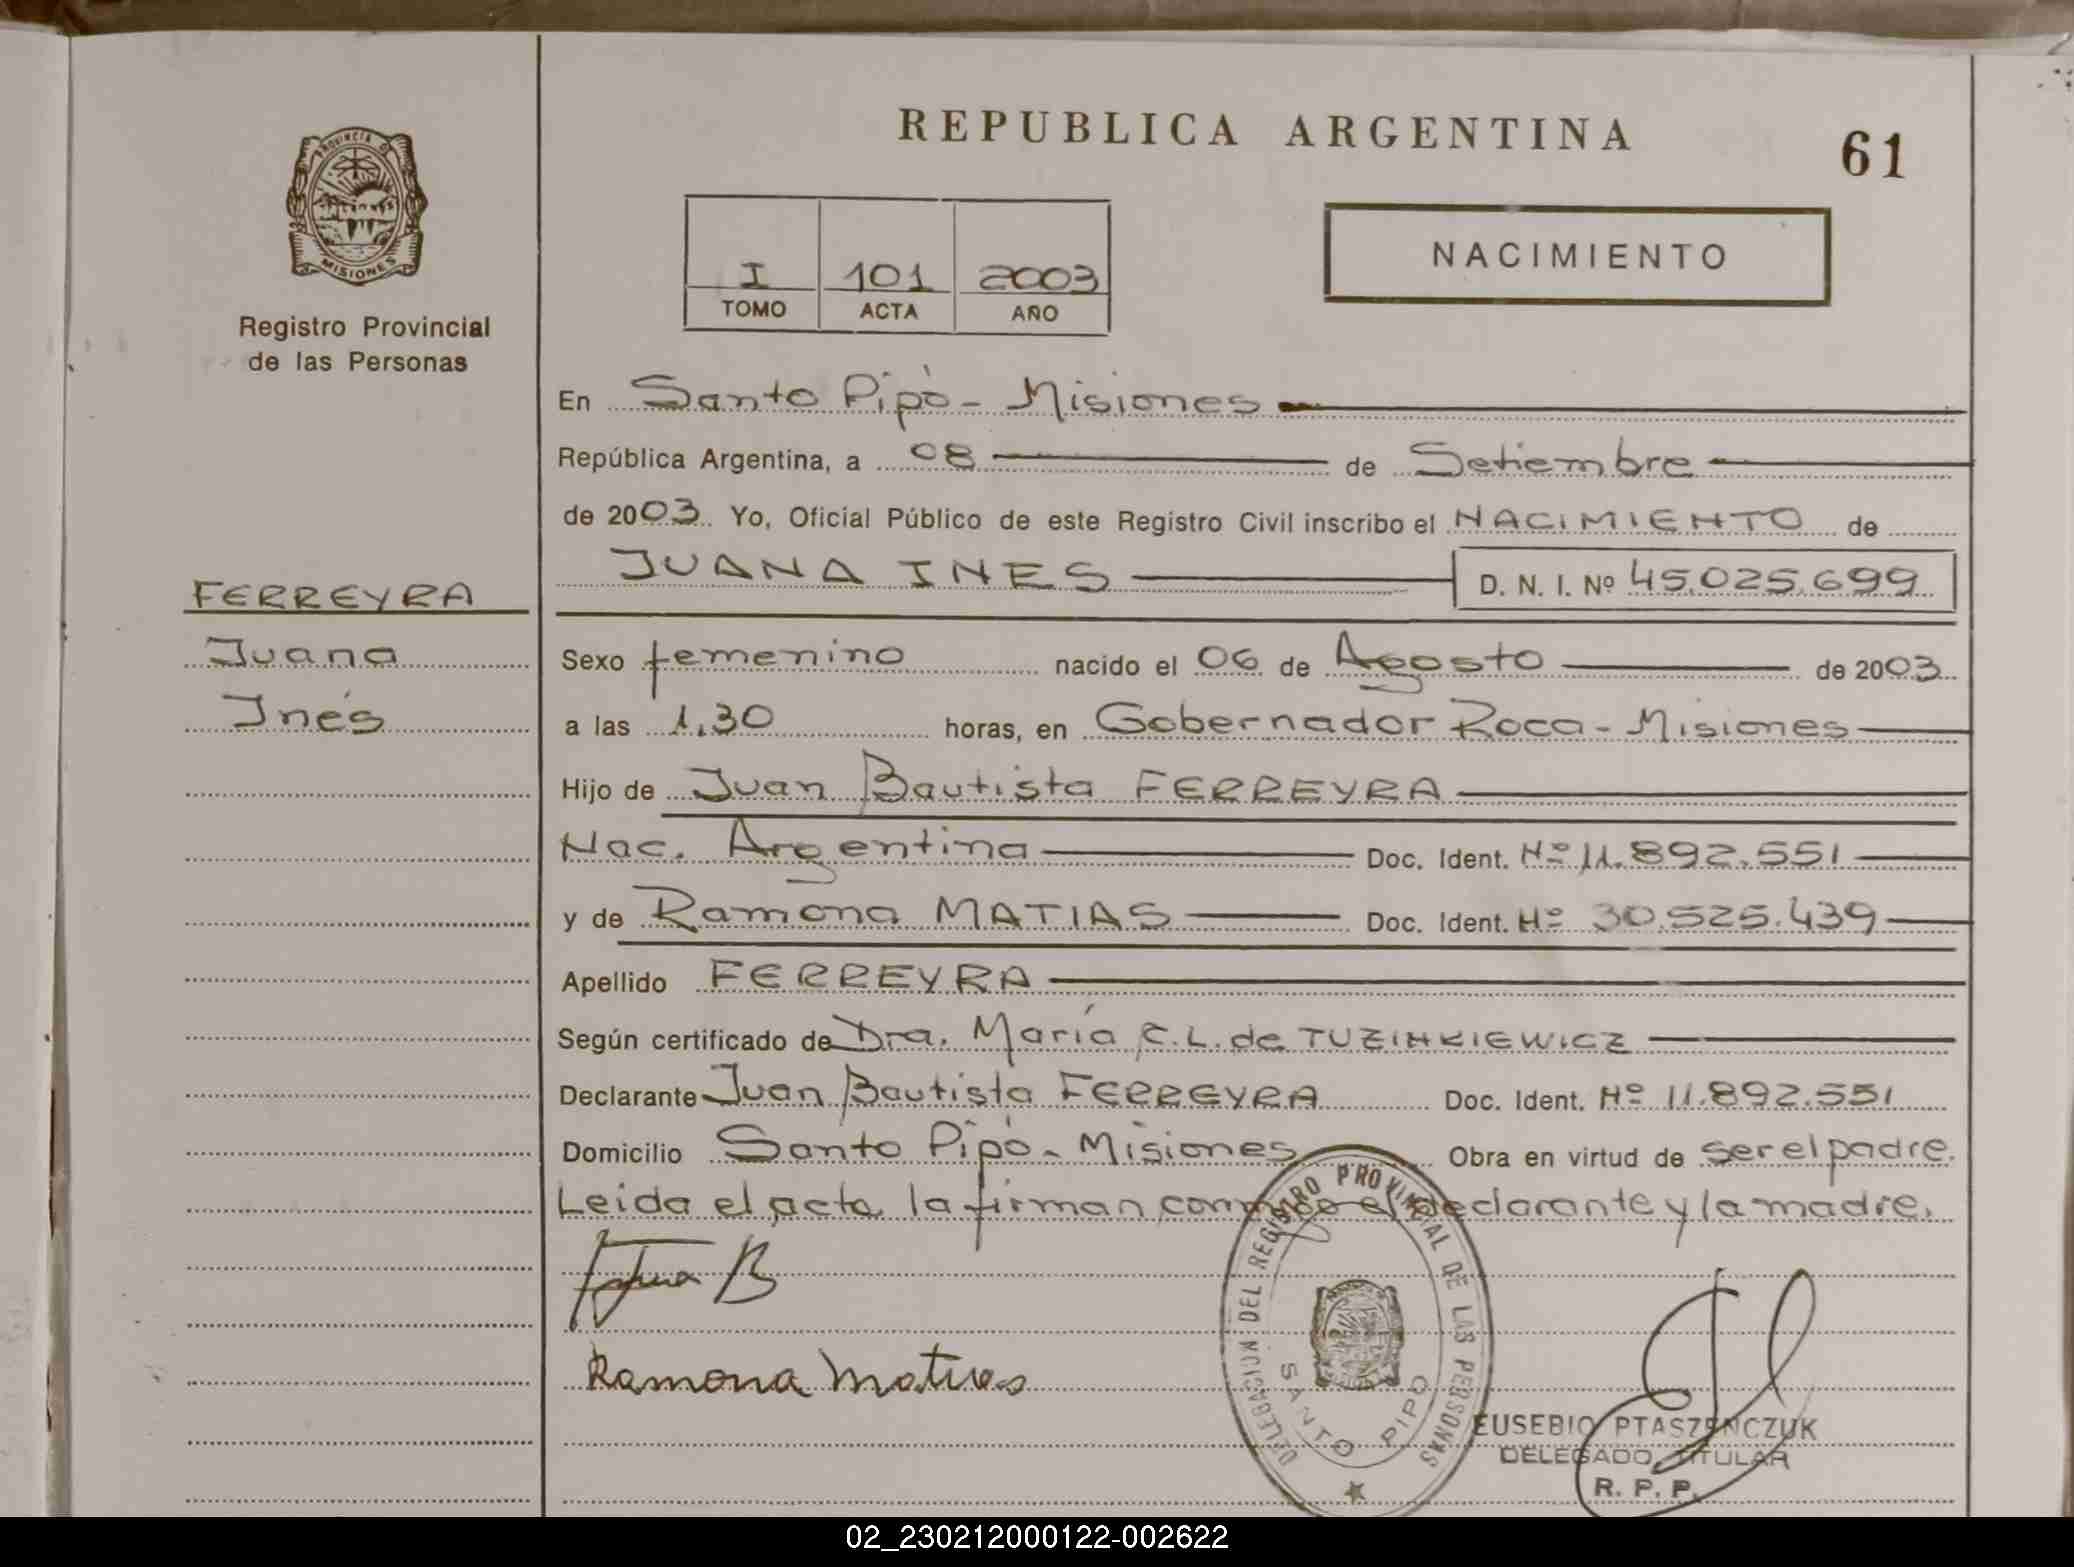 REPUBLICA ARGENTINA
61
PROVINCIA D
MISIONES
Registro Provincial
de las Personas
I 101 2003
TOMO ACTA AÑO
NACIMIENTO
En Santo Pipó - Misiones
República Argentina, a 08 de Setiembre
de 2003 Yo, Oficial Público de este Registro Civil inscribo el NACIMIENTO de
JUANA INES D. N. I. Nº 45.025.699
FERREYRA
Juana
Inés
Sexo femenino nacido el 06 de Agosto de 2003
a las 1,30 horas, en Gobernador Roca - Misiones
Hijo de Juan Bautista FERREYRA
Nac. Argentina Doc. Ident. Nº 11.892.551
y de Ramona MATIAS Doc. Ident. Nº 30.525.439
Apellido FERREYRA
Según certificado de Dra. María C. L. de TUZINKIEWICZ
Declarante Juan Bautista FERREYRA Doc. Ident. Nº 11.892.551
Domicilio Santo Pipó - Misiones Obra en virtud de ser el padre.
Leida el acta la firman conmigo el declarante y la madre.
B
Ramona Matias
DELEGACION DEL REGISTRO PROVINCIAL DE LAS PERSONAS
SANTO PIPO
EUSEBIO PTASZENCZUK
DELEGADO TITULAR
R. P. P.
02_230212000122-002622